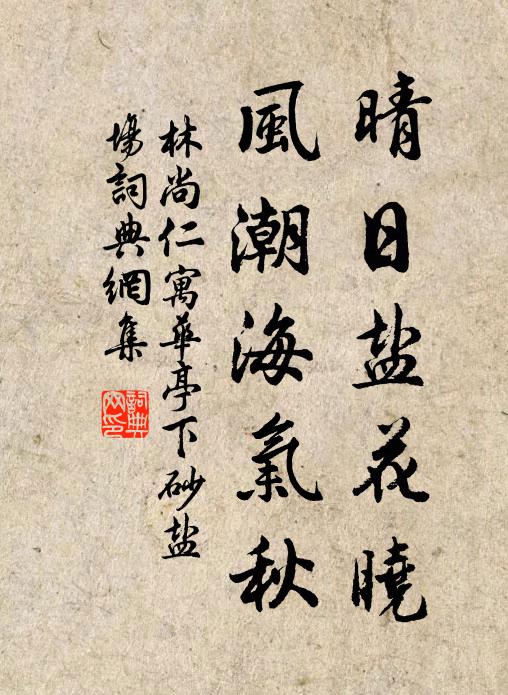 晴日盐花曉
風潮海氣秋
林尚仁寓華亭下砂盐
場詞典網集
詞典
网印